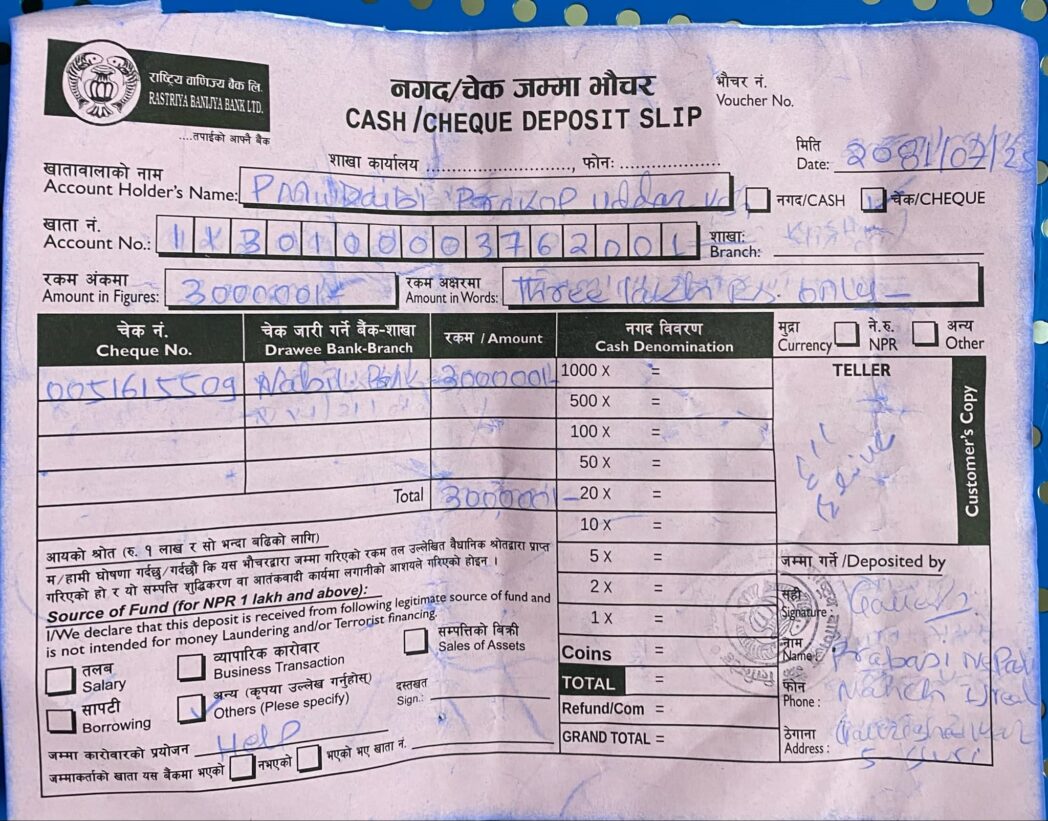 राष्ट्रिय वाणिज्य बैंक लि.
RASTRIYA BANIJYA BANK LTD.
....तपाईको आफ्नै बैंक
नगद/चेक जम्मा भौचर
CASH/CHEQUE DEPOSIT SLIP
भौचर नं.
Voucher No.
शाखा कार्यालय ............................, फोनः ....................
मिति
Date: 2081/07/25
खातावालाको नाम
Account Holder's Name:
नगद/CASH चेक/CHEQUE
खाता नं.
Account No.: 30100003762001
शाखाः
Branch:
रकम अंकमा
Amount in Figures: 300000/-
रकम अक्षरमा
Amount in Words: Three lakh Rs. only-
चेक नं.
Cheque No.
चेक जारी गर्ने बैंक-शाखा
Drawee Bank-Branch
रकम / Amount
नगद विवरण
Cash Denomination
मुद्रा
Currency
ने.रु.
NPR
अन्य
Other
0051615509 Nabil Bank 300000/-
1000 X =
500 X =
100 X =
50 X =
Total 300,000/-
20 X =
10 X =
5 X =
2 X =
1 X =
Coins =
TOTAL =
Refund/Com =
GRAND TOTAL =
TELLER
Customer's Copy
आयको श्रोत (रु. १ लाख र सो भन्दा बढिको लागि)
म/हामी घोषणा गर्दछु/गर्दछौं कि यस भौचरद्वारा जम्मा गरिएको रकम तल उल्लेखित बैधानिक श्रोतद्वारा प्राप्त
गरिएको हो र यो सम्पत्ति शुद्धिकरण वा आतंकवादी कार्यमा लगानीको आशयले गरिएको होइन ।
Source of Fund (for NPR 1 lakh and above):
I/We declare that this deposit is received from following legitimate source of fund and
is not intended for money Laundering and/or Terrorist financing.
तलब
Salary
व्यापारिक कारोवार
Business Transaction
सम्पत्तिको बिक्री
Sales of Assets
सापटी
Borrowing
अन्य (कृपया उल्लेख गर्नुहोस्)
Others (Plese specify)
दस्तखत
Sign.:
जम्मा कारोवारको प्रयोजन Help
जम्माकर्ताको खाता यस बैंकमा भएको नभएको भएको भए खाता नं.
जम्मा गर्ने /Deposited by
सही
Signature:
नाम
Name: Prabasi Nepali
फोन
Phone: Manch
ठेगाना
Address: